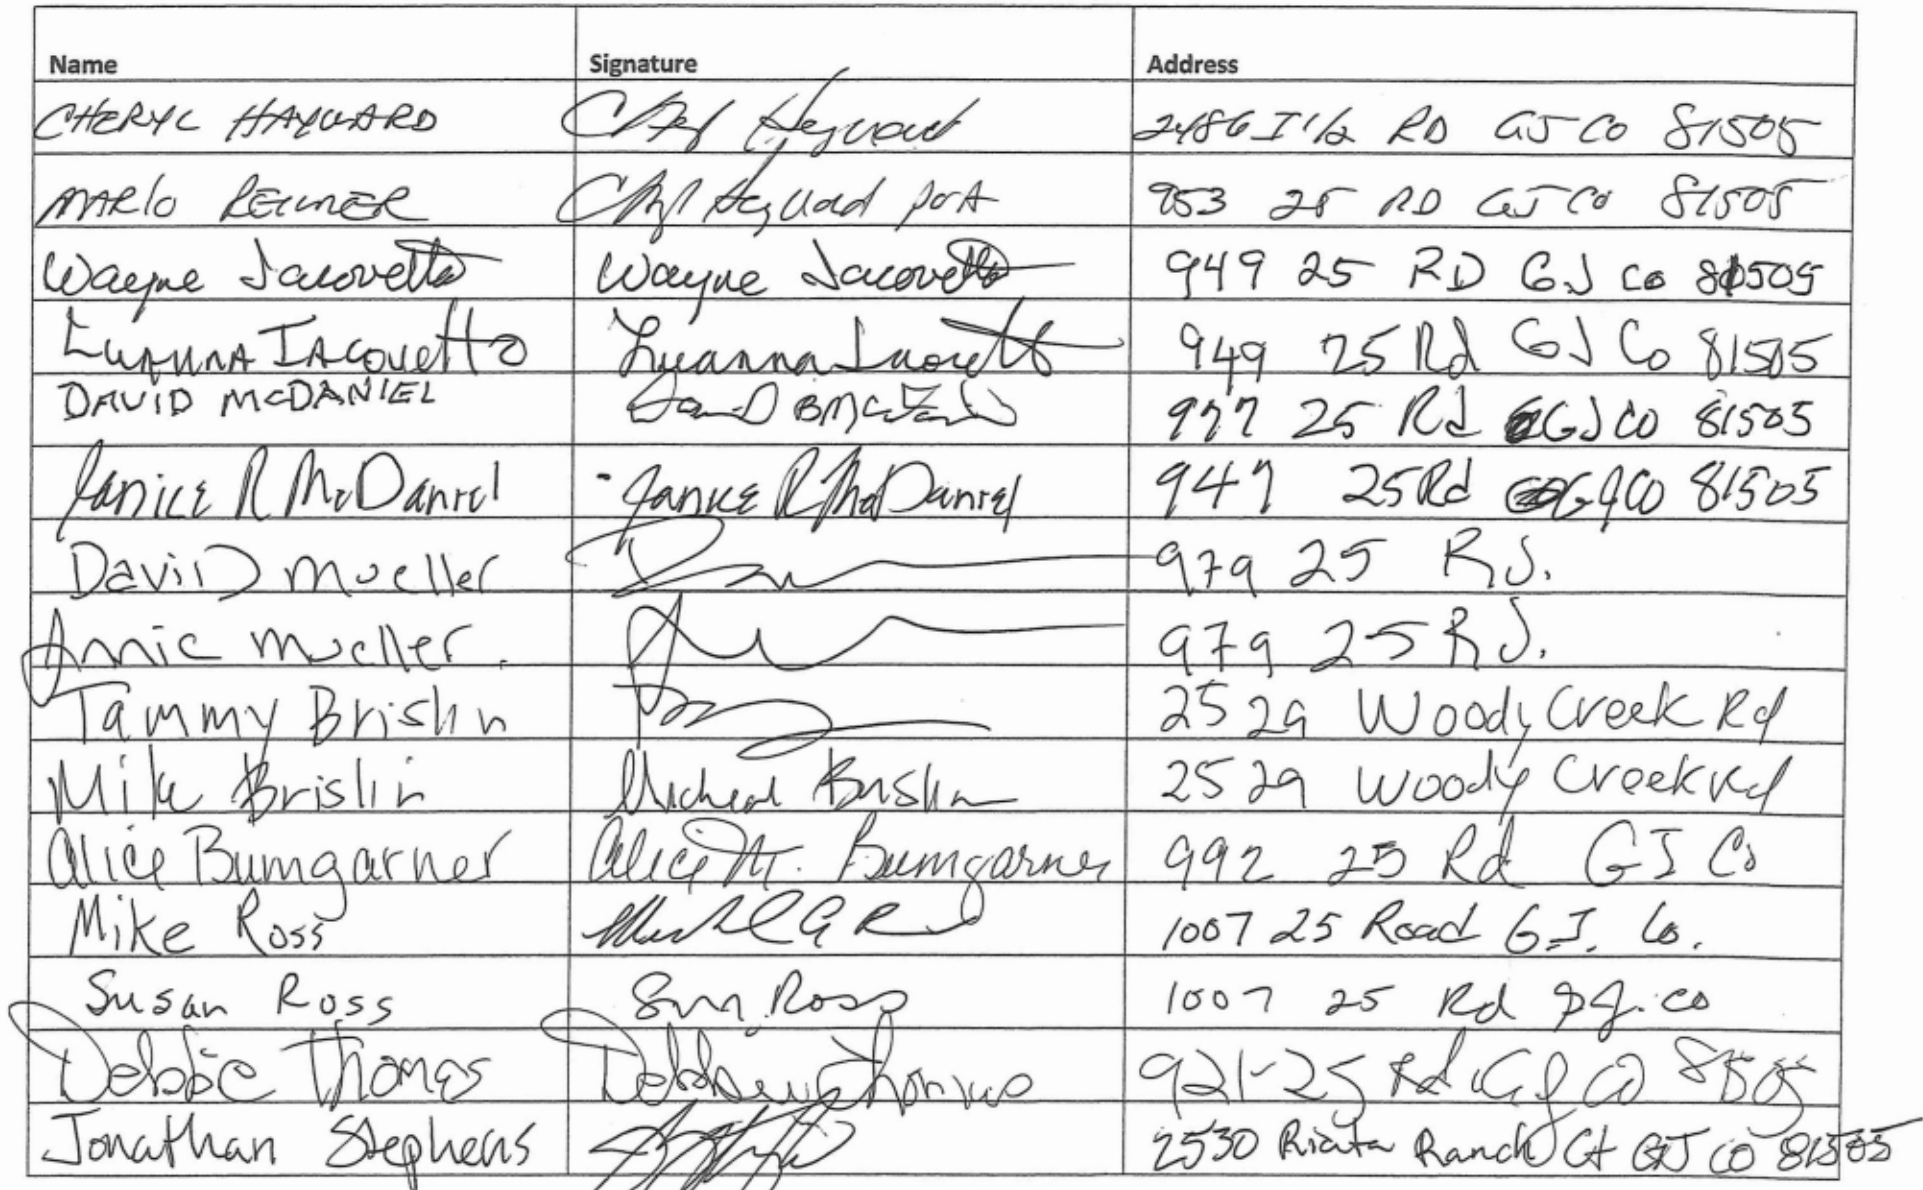 Name Signature Address
CHERYL HAYWARD Heyward 2486 I 1/2 RD GJ CO 81505
MARLO REUMER 953 25 RD GJ CO 81505
Wayne Iacovetto Wayne Iacovetto 949 25 RD GJ Co 81505
Luanna Iacovetto Luanna Iacovetto 949 25 Rd GJ Co 81505
DAVID McDANIEL David B McDaniel 977 25 Rd GJ CO 81505
Janice R McDaniel Janice R McDaniel 947 25 Rd GJ CO 81505
David Mueller 979 25 Rd.
Annie Mueller. 979 25 Rd.
Tammy Brislin 2529 Woody Creek Rd
Mike Brislin Michael Brislin 2529 Woody Creek Rd
Alice Bumgarner Alice M. Bumgarner 992 25 Rd GJ Co
Mike Ross 1007 25 Road G.J. Co.
Susan Ross Ross 1007 25 Rd GJ. CO
Debbie Thomas Thomas 921-25 Rd GJ CO 81505
Jonathan Stephens 2530 Riata Ranch Ct GJ CO 81505